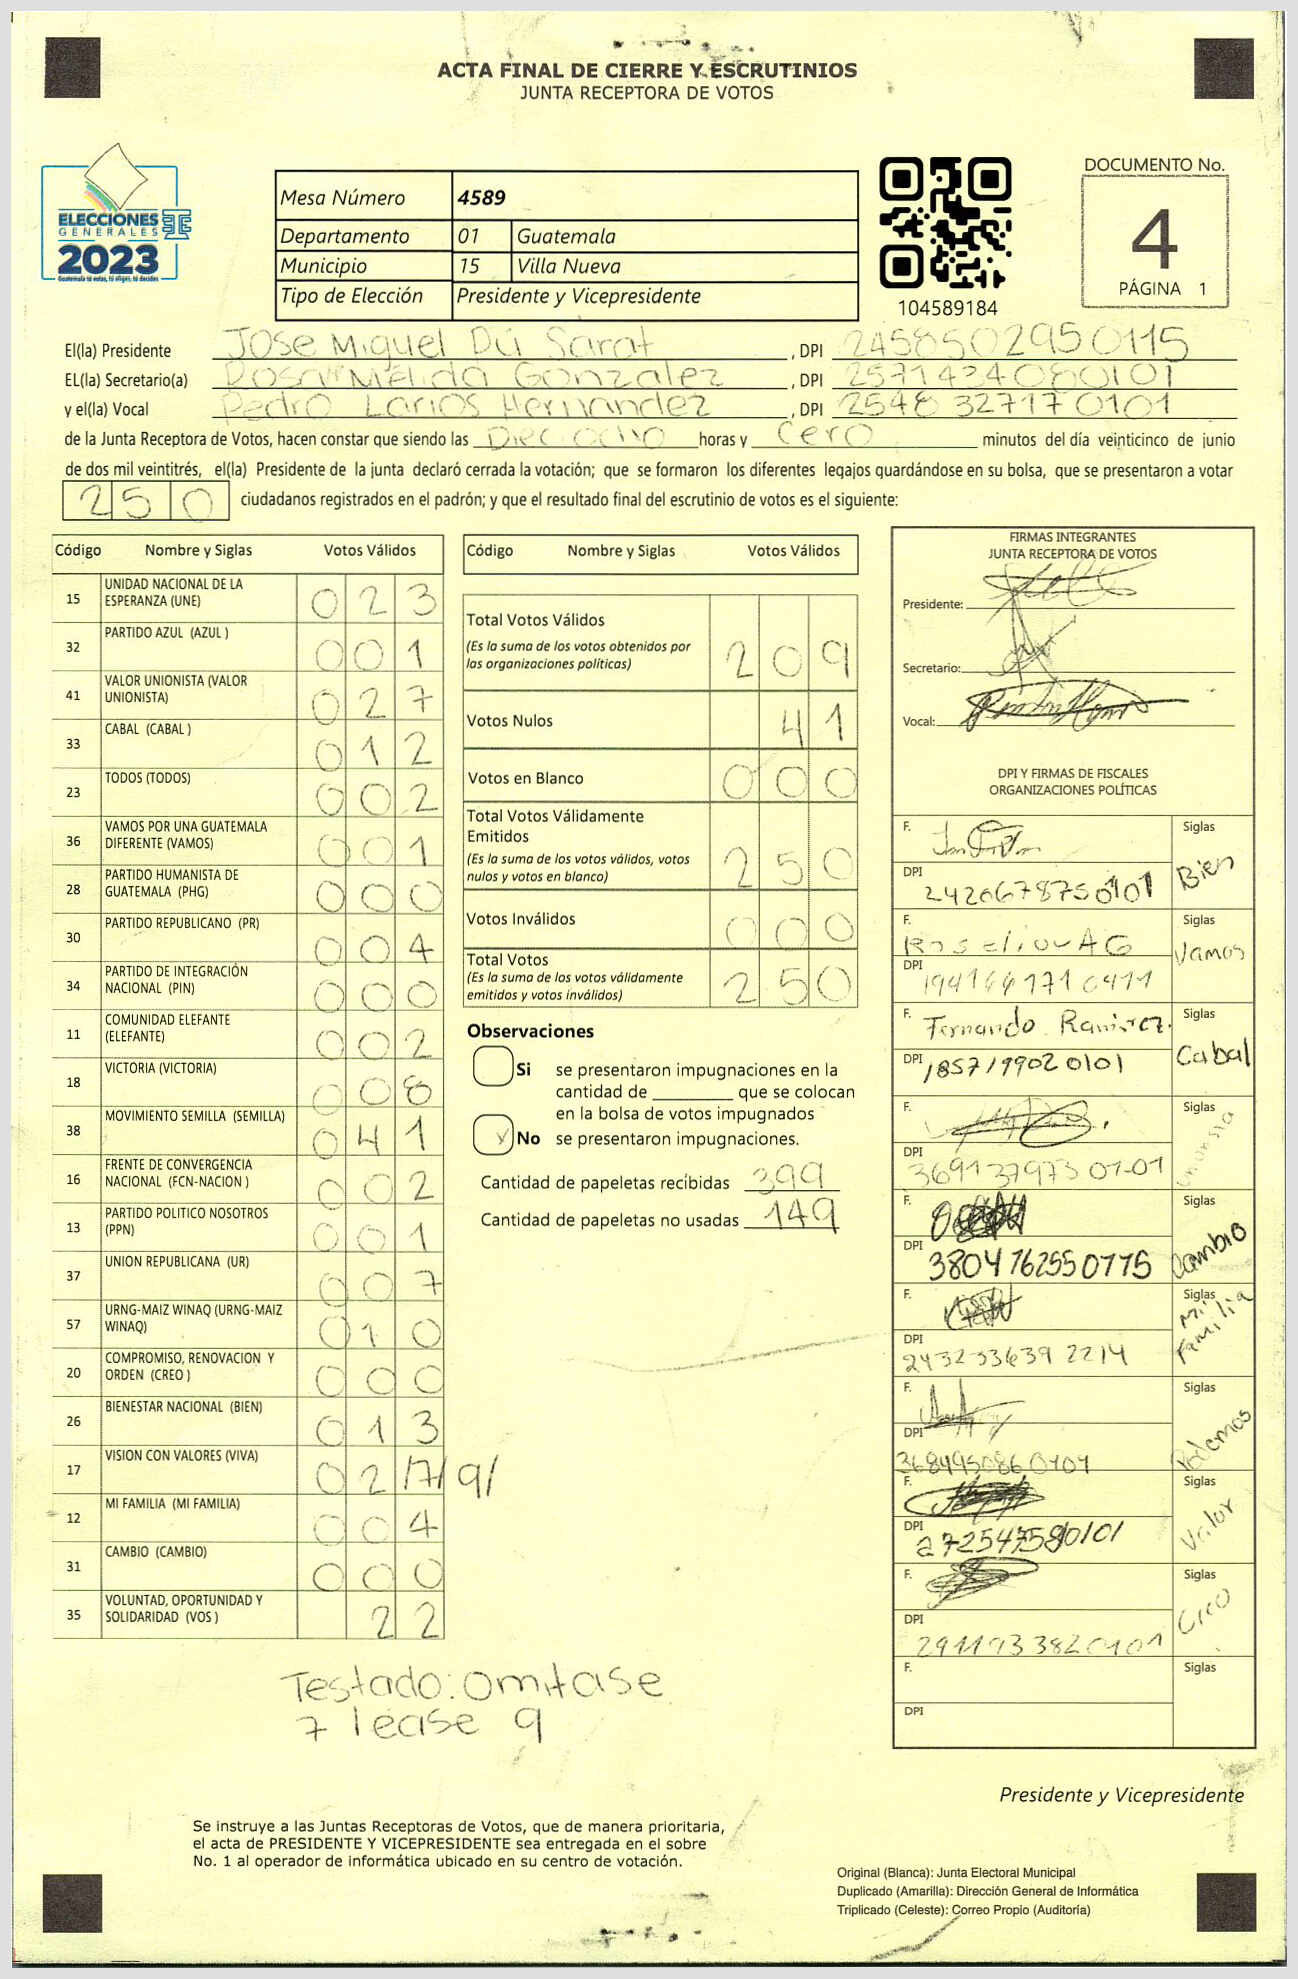 ACTA FINAL DE CIERRE Y ESCRUTINIOS
JUNTA RECEPTORA DE VOTOS
ELECCIONES
GENERALES
2023
Guatemala tú votas, tú eliges, tú decides
Mesa Número 4589
Departamento 01 Guatemala
Municipio 15 Villa Nueva
Tipo de Elección Presidente y Vicepresidente
104589184
DOCUMENTO No.
4
PÁGINA 1
El(la) Presidente Jose Miguel Du Sarat , DPI 2458502950115
EL(la) Secretario(a) Rosa Melida Gonzalez , DPI 2571434080101
y el(la) Vocal Pedro Larios Hernandez , DPI 2548327170101
de la Junta Receptora de Votos, hacen constar que siendo las Dieciocho horas y Cero minutos del día veinticinco de junio
de dos mil veintitrés, el(la) Presidente de la junta declaró cerrada la votación; que se formaron los diferentes legajos quardándose en su bolsa, que se presentaron a votar
250 ciudadanos registrados en el padrón; y que el resultado final del escrutinio de votos es el siguiente:
Código Nombre y Siglas Votos Válidos
15 UNIDAD NACIONAL DE LA ESPERANZA (UNE) 023
32 PARTIDO AZUL (AZUL ) 001
41 VALOR UNIONISTA (VALOR UNIONISTA) 027
33 CABAL (CABAL ) 012
23 TODOS (TODOS) 002
36 VAMOS POR UNA GUATEMALA DIFERENTE (VAMOS) 001
28 PARTIDO HUMANISTA DE GUATEMALA (PHG) 000
30 PARTIDO REPUBLICANO (PR) 004
34 PARTIDO DE INTEGRACIÓN NACIONAL (PIN) 000
11 COMUNIDAD ELEFANTE (ELEFANTE) 002
18 VICTORIA (VICTORIA) 008
38 MOVIMIENTO SEMILLA (SEMILLA) 041
16 FRENTE DE CONVERGENCIA NACIONAL (FCN-NACION ) 002
13 PARTIDO POLITICO NOSOTROS (PPN) 001
37 UNION REPUBLICANA (UR) 007
57 URNG-MAIZ WINAQ (URNG-MAIZ WINAQ) 010
20 COMPROMISO, RENOVACION Y ORDEN (CREO ) 000
26 BIENESTAR NACIONAL (BIEN) 013
17 VISION CON VALORES (VIVA) 02/7/9/
12 MI FAMILIA (MI FAMILIA) 004
31 CAMBIO (CAMBIO) 000
35 VOLUNTAD, OPORTUNIDAD Y SOLIDARIDAD (VOS ) 22
Testado: omitase
7 lease 9
Código Nombre y Siglas Votos Válidos
Total Votos Válidos 209
(Es la suma de los votos obtenidos por
las organizaciones políticas)
Votos Nulos 41
Votos en Blanco 000
Total Votos Válidamente
Emitidos 250
(Es la suma de los votos válidos, votos
nulos y votos en blanco)
Votos Inválidos 000
Total Votos 250
(Es la suma de los votos válidamente
emitidos y votos inválidos)
Observaciones
Si se presentaron impugnaciones en la
cantidad de ________ que se colocan
en la bolsa de votos impugnados
No se presentaron impugnaciones.
Cantidad de papeletas recibidas 399
Cantidad de papeletas no usadas 149
FIRMAS INTEGRANTES
JUNTA RECEPTORA DE VOTOS
Presidente:
Secretario:
Vocal:
DPI Y FIRMAS DE FISCALES
ORGANIZACIONES POLÍTICAS
F. Siglas Bien
DPI 2420678750101
F. Siglas Vamos
DPI 1941661710411
F. Fernando Ramirez. Siglas Cabal
DPI 1857199020101
F. Siglas
DPI 3691379730101
F. Siglas Cambio
DPI 3804762550775
F. Siglas Mi Familia
DPI 2432336392214
F. Siglas Podemos
DPI 3684950860101
F. Siglas Valor
DPI
F. Siglas Creo
DPI 2911933820101
F. Siglas
DPI
Presidente y Vicepresidente
Se instruye a las Juntas Receptoras de Votos, que de manera prioritaria,
el acta de PRESIDENTE Y VICEPRESIDENTE sea entregada en el sobre
No. 1 al operador de informática ubicado en su centro de votación.
Original (Blanca): Junta Electoral Municipal
Duplicado (Amarilla): Dirección General de Informática
Triplicado (Celeste): Correo Propio (Auditoría)